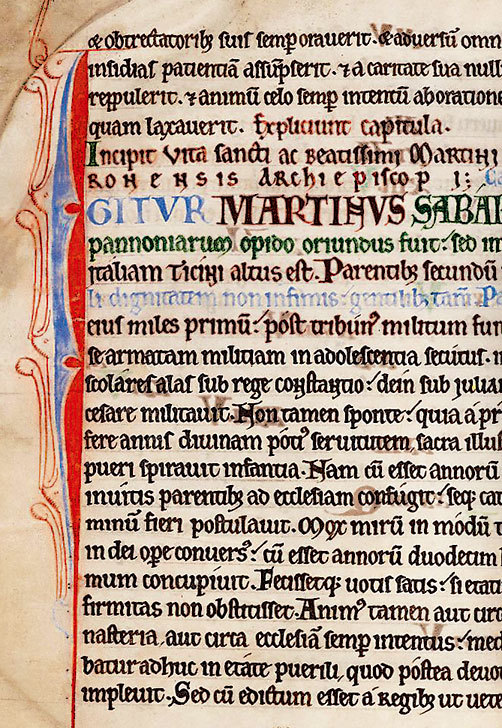 & obtrectatorib; suis semp orauerit. & aduersū omn
insidias patientiā assūpserit. & a caritate sua null
reppulerit. & animū celo semp intentū ab oratione
quam laxauerit. Expliciunt capitula.
Incipit Vita sancti ac beatissimi Martini
ronensis archiepiscopi:
IGITVR MARTINVS SABAR
pannoniarum opido oriundus fuit. sed in
italiam ticini altus est. Parentib; secundū
li dignitatem non infimis. gentilib; tam. Pa
eius miles primū. post tribun᷒ militum fui
se armatam militiam in adolescentia secutus. n
scolares alas sub rege constantio. dein sub iulia
cesare militauit. Non tamen sponte. quia a pri
fere annis diuinam poti᷒ seruitutem. sacra illus
pueri spirauit infantia. Nam cū esset annorū
inuitis parentib; ad ecclesiam confugit. seq; cat
minū fieri postulauit. Mox mirū in modū t
in dei ope conuers᷒. cū esset annorū duodecim
mum concupiuit. Fecissetq; uotis satis. si etati
firmitas non obstitisset. Anim᷒ tamen aut circ
nasteria. aut circa ecclesiā semp intentus. med
batur adhuc in etate puerili. quod postea deuot
impleuit. Sed cū edictum esset a regib; ut uete